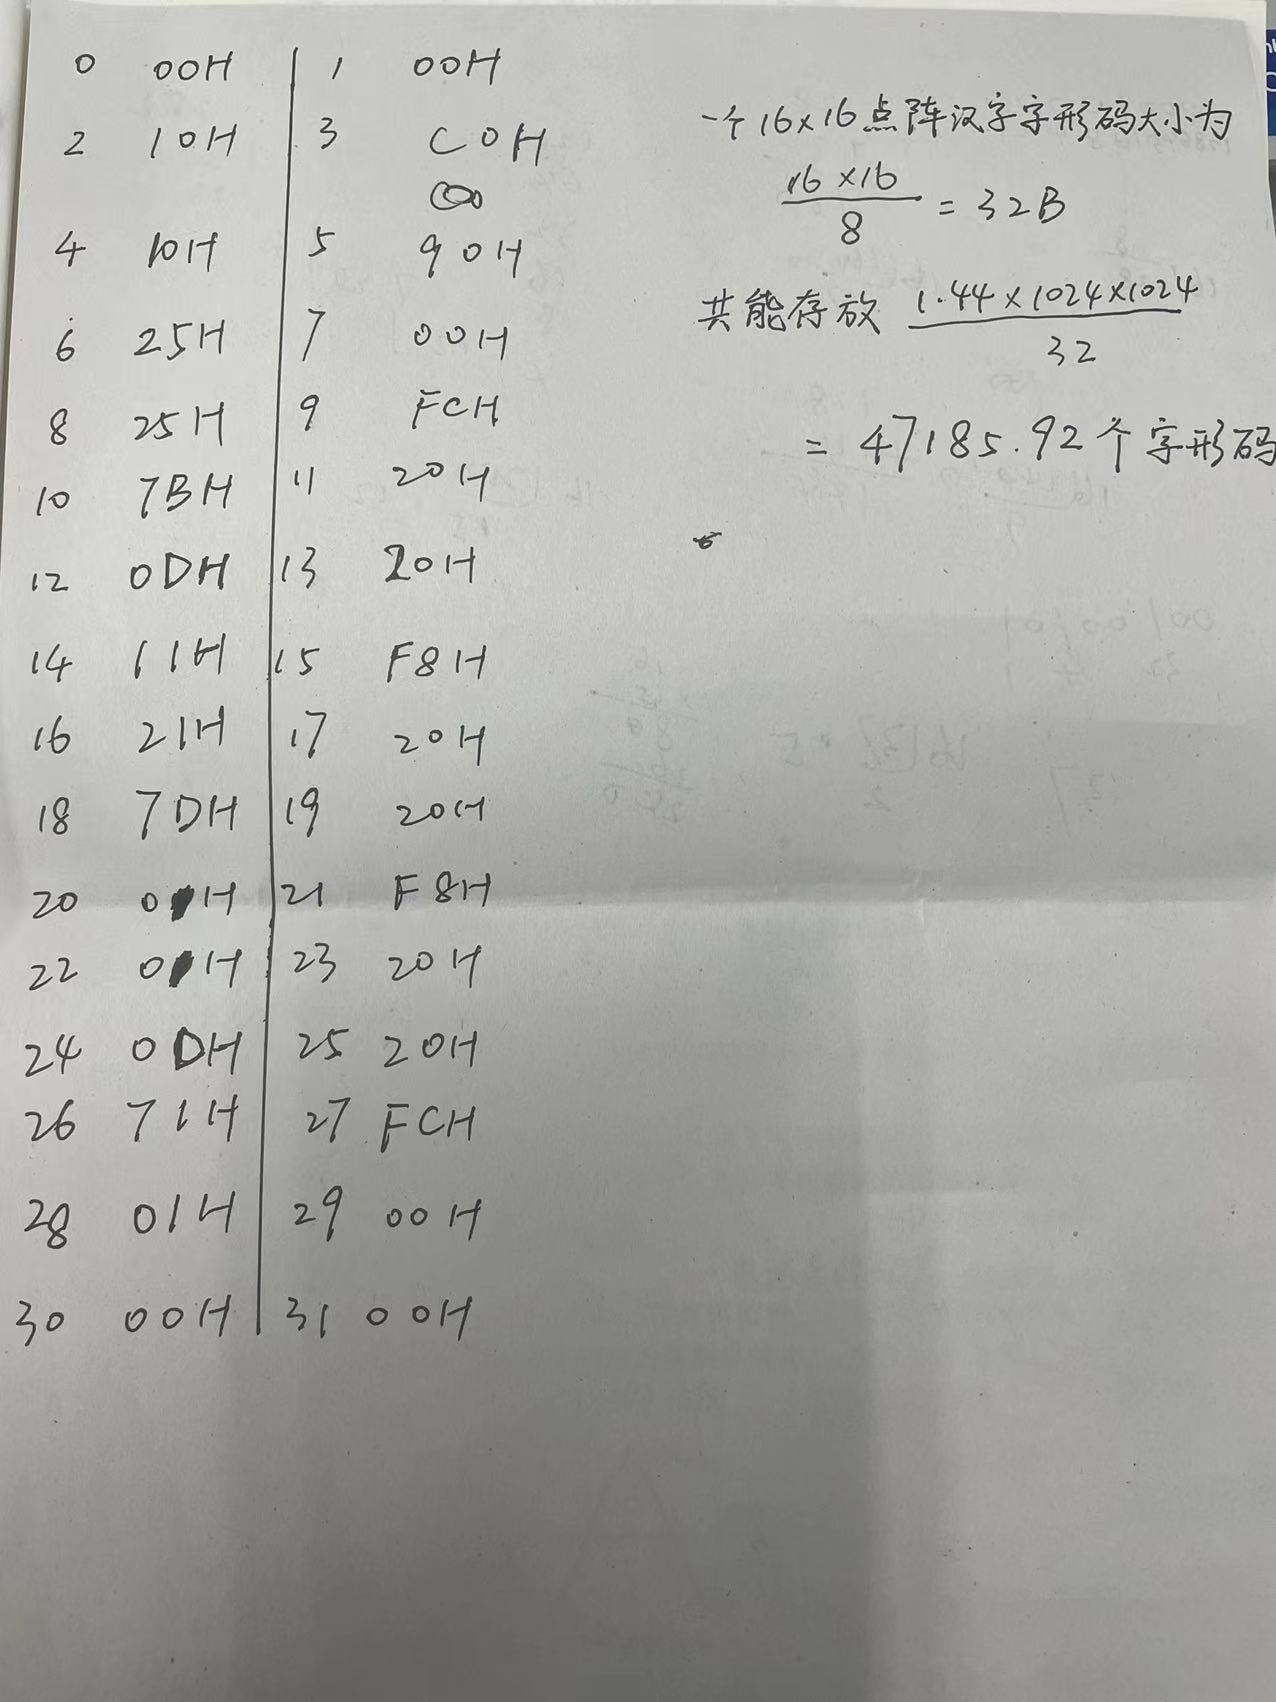 0 00H 1 00H
2 10H 3 C0H
4 10H 5 90H
6 25H 7 00H
8 25H 9 FCH
10 7BH 11 20H
12 0DH 13 20H
14 11H 15 F8H
16 21H 17 20H
18 7DH 19 20H
20 01H 21 F8H
22 01H 23 20H
24 0DH 25 20H
26 71H 27 FCH
28 01H 29 00H
30 00H 31 00H
一个16×16点阵汉字字形码大小为
16×16
8 = 32B
共能存放 1.44×1024×1024
32
= 47185.92个字形码